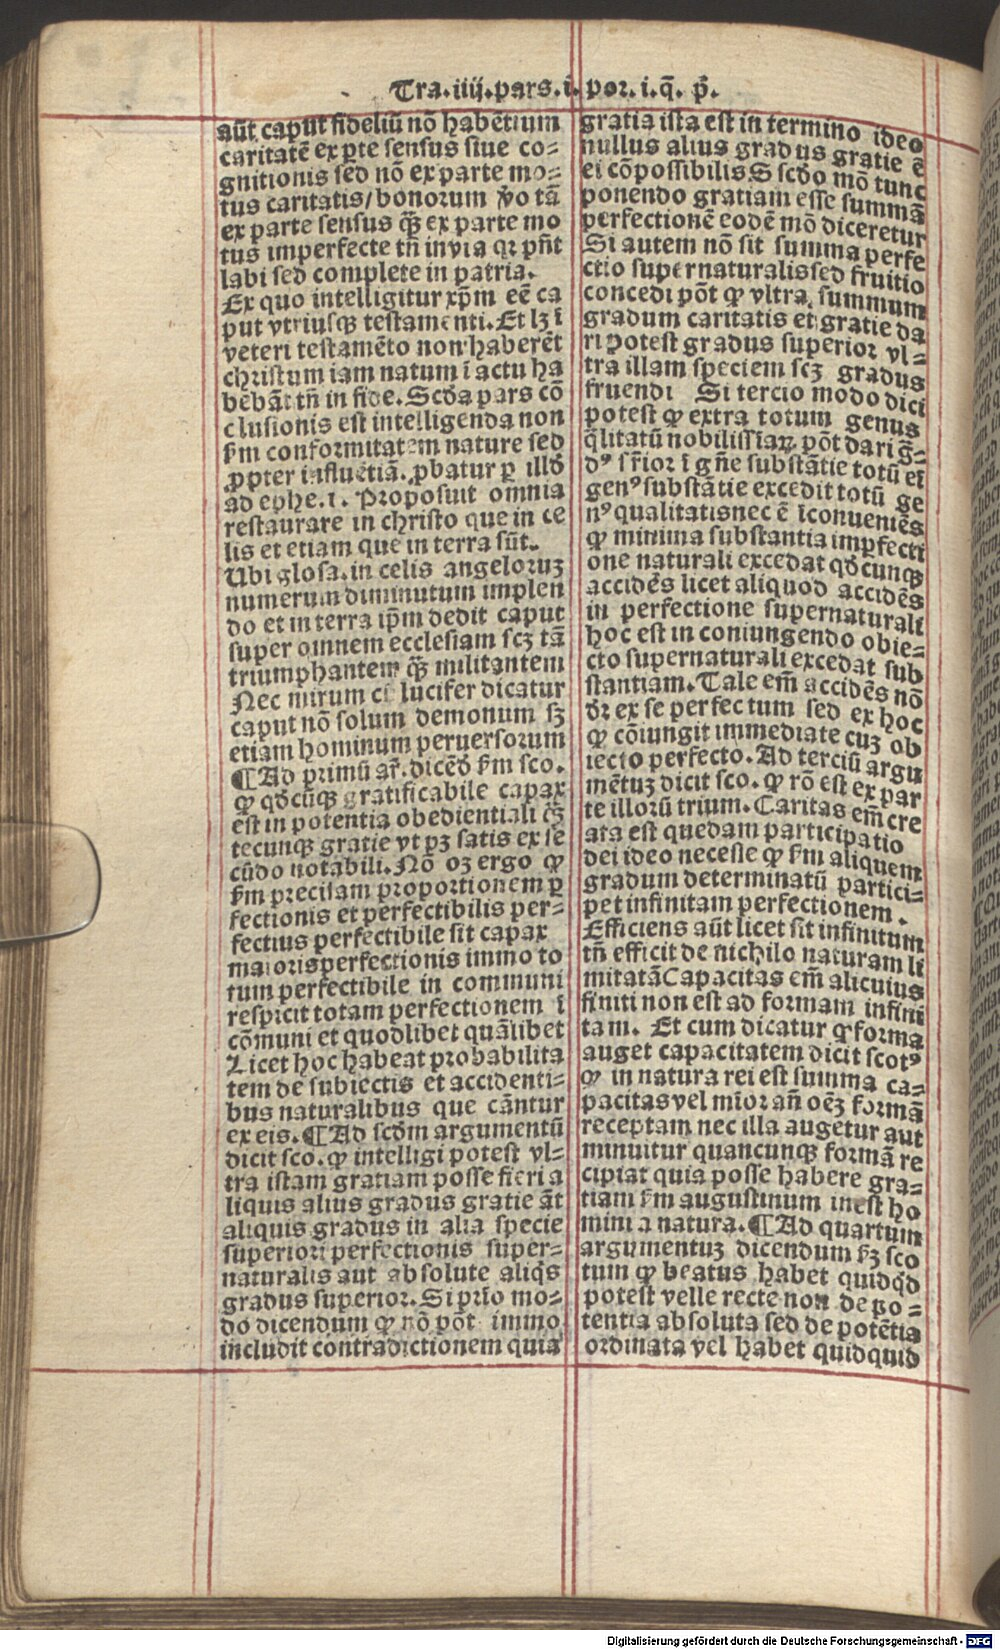 Tra.iiij.pars.i.por.i.q̄.p̄.
aūt caput fideliū nō habentium
caritatē ex ꝑte sensus siue co-
gnitionis sed nō ex parte mo-
tus caritatis/bonorum v̄o tā
ex parte sensus qꝫ̄ ex parte mo
tus imperfecte tn̄ in via qꝛ pn̄t
labi sed complete in patria.
Ex quo intelligitur xp̄m eē ca
put vtriusqꝫ testamenti. Et lꝫ ī
veteri testamēto non haberēt
christum iam natum ī actu ha
bēbāt tn̄ in fide. Scd̄a pars cō
clusionis est intelligenda non
ẜm conformitatem nature sed
ꝓpter influētiā. ꝓbatur ꝑ illd̄
ad ephe.1. Proposuit omnia
restaurare in christo que in ce
lis et etiam que in terra sūt.
Ubi glosa. in celis angeloruꝫ
numerum diminutum implen
do et in terra ip̄m dedit caput
super omnem ecclesiam scꝫ tā
triumphantem qꝫ̄ militantem
Nec mirum ci lucifer dicatur
caput nō solum demonum sꝫ
etiam hominum peruersorum
¶Ad primū ar̄. dicēd̄ ẜm sco.
ꝙ qd̄cūqꝫ gratificabile capax
est in potentia obedientiali qꝫ̄
tecunqꝫ gratie vt pꝫ satis ex se
cūdo notabili. Nō oꝫ ergo ꝙ
ẜm precisam proportionem ꝑ
fectionis et perfectibilis per-
fectius perfectibile sit capax
maioris perfectionis immo to
tum perfectibile in communi
respicit totam perfectionem ī
cōmuni et quodlibet quālibet
Licet hoc habeat probabilita
tem de subiectis et accidenti-
bus naturalibus que cāntur
ex eis.¶Ad scd̄m argumentū
dicit sco. ꝙ intelligi potest vl-
tra istam gratiam posse fieri a
liquis alius gradus gratie āt
aliquis gradus in alia specie
superiori perfectionis super-
naturalis aut absolute aliqͥs
gradus superior. Si prīo mo-
do dicendum ꝙ nō pōt immo
includit contradictionem quia
gratia ista est in termino ideo
nullus alius gradus gratie ē
ei cōpossibilis S scd̄o mō tunc
ponendo gratiam esse summā
perfectionē eodē mō diceretur
Si autem nō sit summa perfe
ctio supernaturalis sed fruitio
concedi pōt ꝙ vltra summum
gradum caritatis et gratie da
ri potest gradus superior vl-
tra illam speciem scꝫ gradus
fruendi Si tercio modo dici
potest ꝙ extra totum genus
q̄litatū nobilissiaꝝ pōt dari gͣ-
dꝰ sr̄ior ī gn̄e substātie totū ei
genꝰ substātie excedit totū ge
nꝰ qualitatis nec ē īconueniēs
ꝙ minima substantia imꝑfecti
one naturali excedat qd̄cunqꝫ
accidēs licet aliquod accidēs
in perfectione supernaturali
hoc est in coniungendo obie-
cto supernaturali excedat sub
stantiam. Tale em̄ accidēs nō
dr̄ ex se perfectum sed ex hoc
ꝙ cōiungit immediate cuꝫ ob
iecto perfecto. Ad terciū argu
mētuꝫ dicit sco. ꝙ rō est ex par
te illorū trium. Caritas em̄ cre
ata est quedam participatio
dei ideo necesse ꝙ ẜm aliquem
gradum determinatū partici-
pet infinitam perfectionem.
Efficiens aūt licet sit infinitum
tn̄ efficit de nichilo naturam li
mitatā Capacitas em̄ alicuius
finiti non est ad formam infini
tam. Et cum dicatur ꝙ forma
auget capacitatem dicit scotꝰ
ꝙ in natura rei est summa ca-
pacitas vel mīor an̄ oēꝫ formā
receptam nec illa augetur aut
minuitur quancunqꝫ formā re
cipiat quia posse habere gra-
tiam ẜm augustinum inest ho
mini a natura.¶Ad quartum
argumentuꝫ dicendum ẜꝫ sco
tum ꝙ beatus habet quidqͥd
potest velle recte non de po-
tentia absoluta sed de potētia
ordinata vel habet quidquid
Digitalisierung gefördert durch die Deutsche Forschungsgemeinschaft - DFG